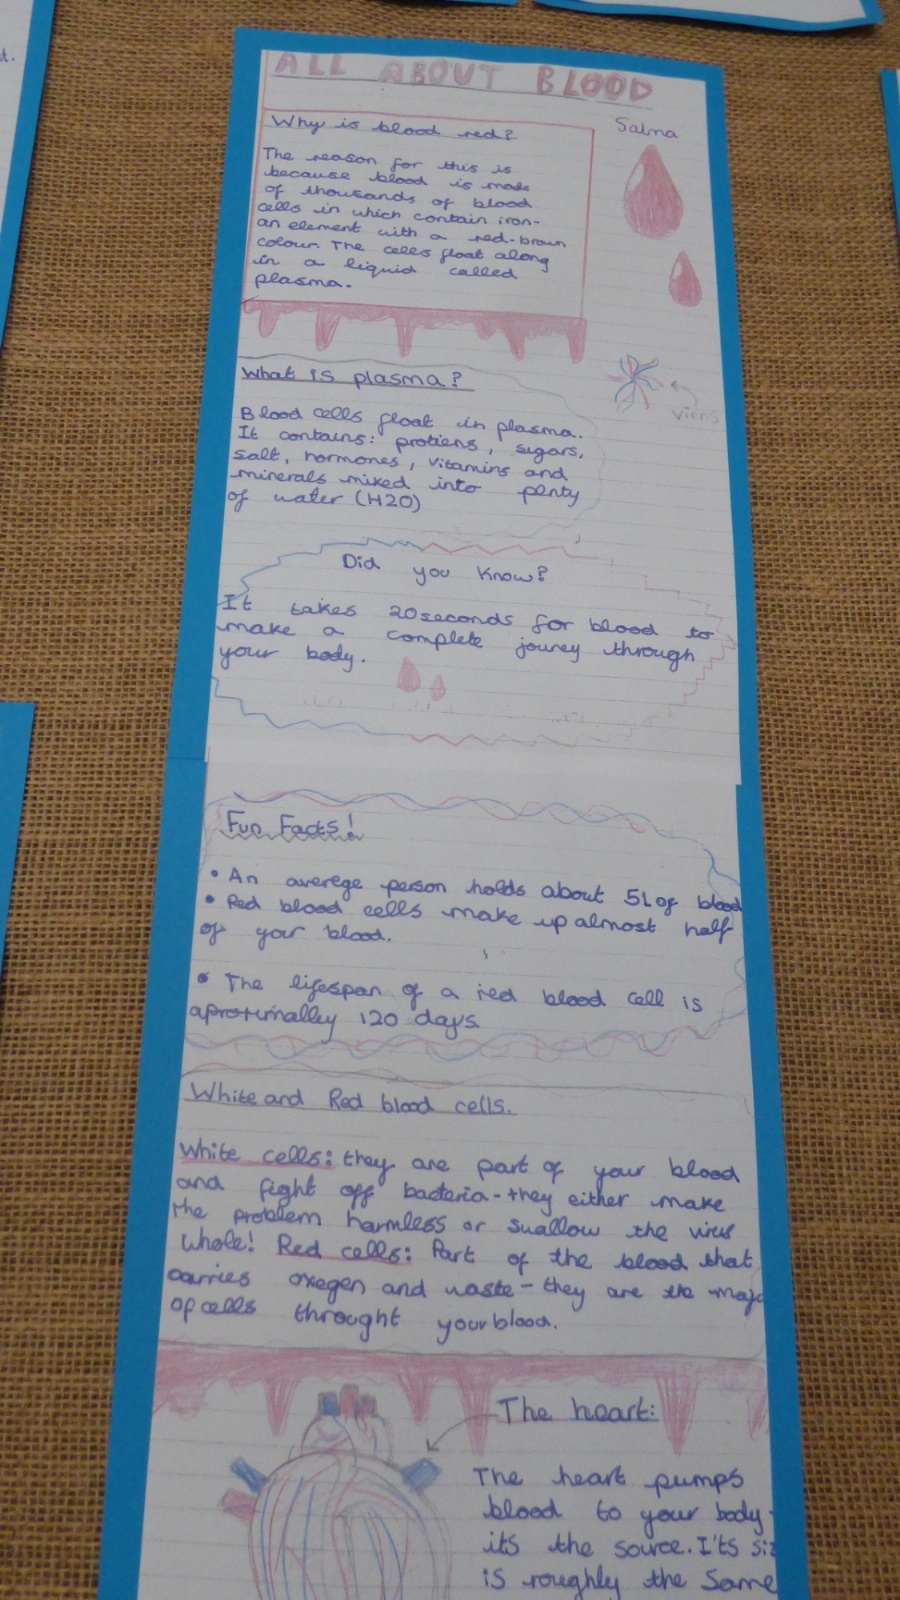 t.
ALL ABOUT BLOOD
Salma
Why is blood red?
The reason for this is
because blood is made
of thousands of blood
cells in which contain iron-
an element with a red-brown
colour. The cells float along
in a liquid called
plasma.
What is plasma?
viens
Blood cells float in plasma.
It contains: protiens, sugars,
salt, hormones, vitamins and
minerals mixed into plenty
of water (H2O)
Did you know?
It takes 20seconds for blood to
make a complete jouney through
your body.
Fun Facts!
• An averege person holds about 5L of blood
• Red blood cells make up almost half
of your blood.
• The lifespan of a red blood cell is
120 days
White and Red blood cells.
White cells: they are part of your blood
and fight off bacteria - they either make
the problem harmless or swallow the virus
whole! Red cells: Part of the blood that
carries oxegen and waste - they are the
of cells throught your blood.
The heart:
The heart pumps
blood to your body-
its the source. I'ts
is roughly the same